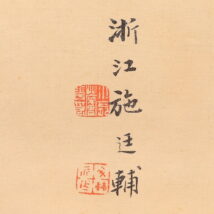 浙江施廷輔